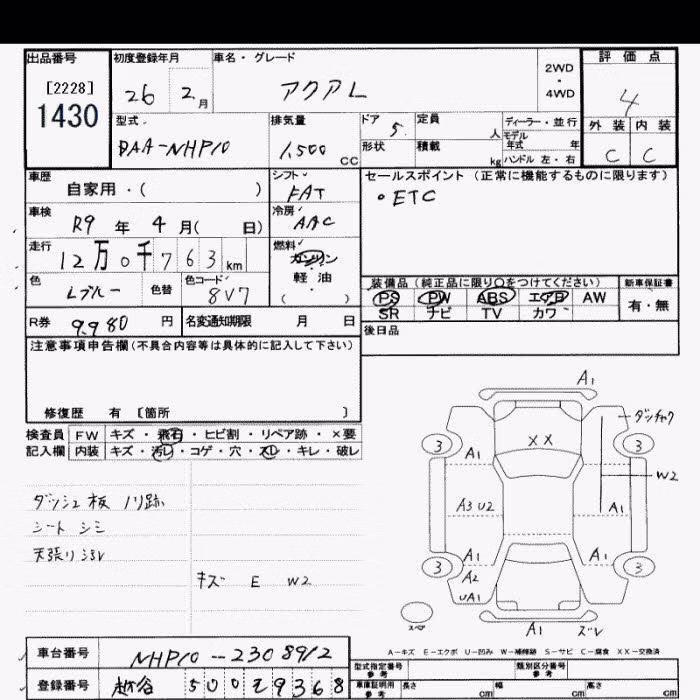 出品番号 初度登録年月 車名・グレード 評価点
[2228]
1430
26 2月 アクアL 2WD・4WD 4
型式 排気量 ドア 定員 ディーラー・並行 外装 内装
DAA-NHP10 1,500 CC 5 人 モデル年式 年 C C
形状 積載 kg ハンドル 左・右
車歴 シフト セールスポイント (正常に機能するものに限ります)
自家用・( ) FAT ・ETC
車検 冷房
R9 年 4 月( 日) AAC
走行 燃料
12万0千763km ガソリン・軽油
( )
色 色替 色コード 装備品 (純正品に限り○をつけてください) 新車保証書
Lブルー 8V7 PS PW ABS エアB AW 有・無
SR ナビ TV カワ
R券 9980 円 名変通知期限 月 日 後日品
注意事項申告欄(不具合内容等は具体的に記入して下さい)
修復歴 有 [箇所 ]
検査員 FW キズ・飛石・ヒビ割・リペア跡・×要
記入欄 内装 キズ・汚レ・コゲ・穴・スレ・キレ・破レ
ダッシュ板 ノリ跡
シート シミ
天張り ヨゴレ
キズ E W2
A1
ダッチャク
3 XX 3
A1
W2
A3 U2 A1
A1 A1
3 A2 3
UA1
スペア A1 ズレ
A-キズ E-エクボ U-凹み W-補修跡 S-サビ C-腐食 XX-交換済
車台番号 NHP10--2308912
型式指定番号 参考 類別区分番号 参考
登録番号 越谷 500 29368
車庫証明用 参考 長さ cm 幅 cm 高さ cm